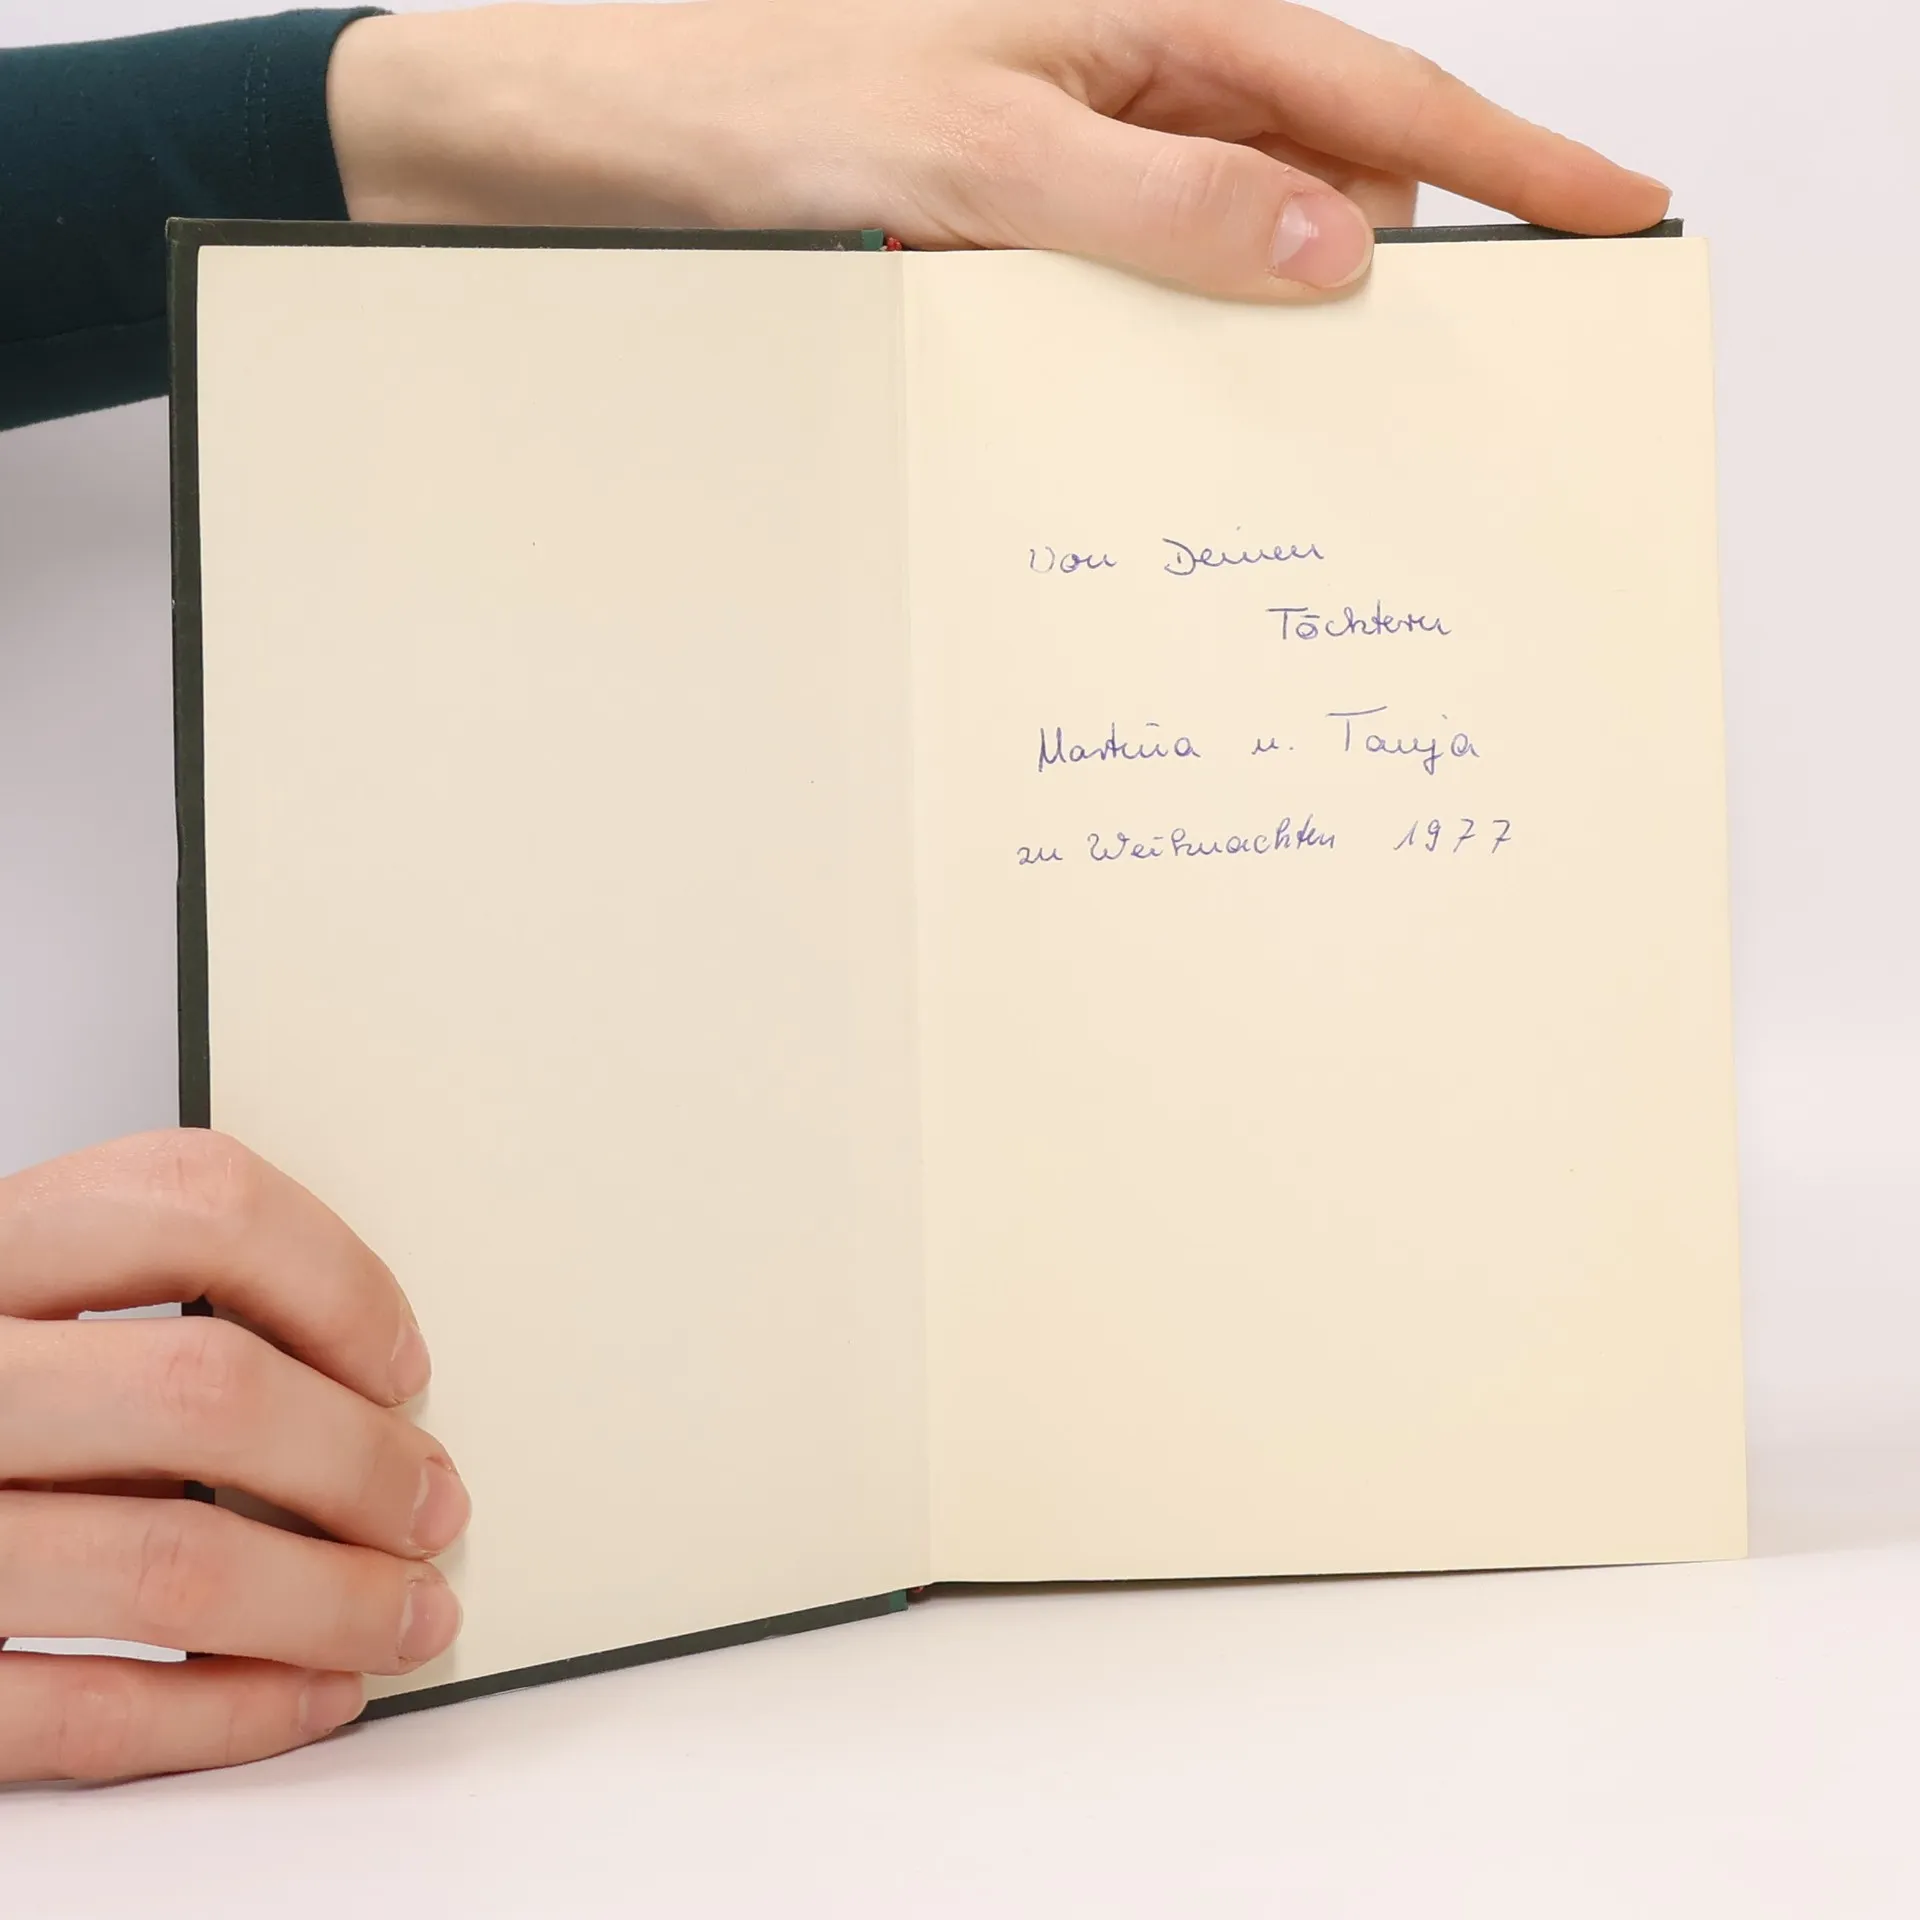 Von Deinen
Töchtern
Martina u. Tanja
zu Weihnachten 1977